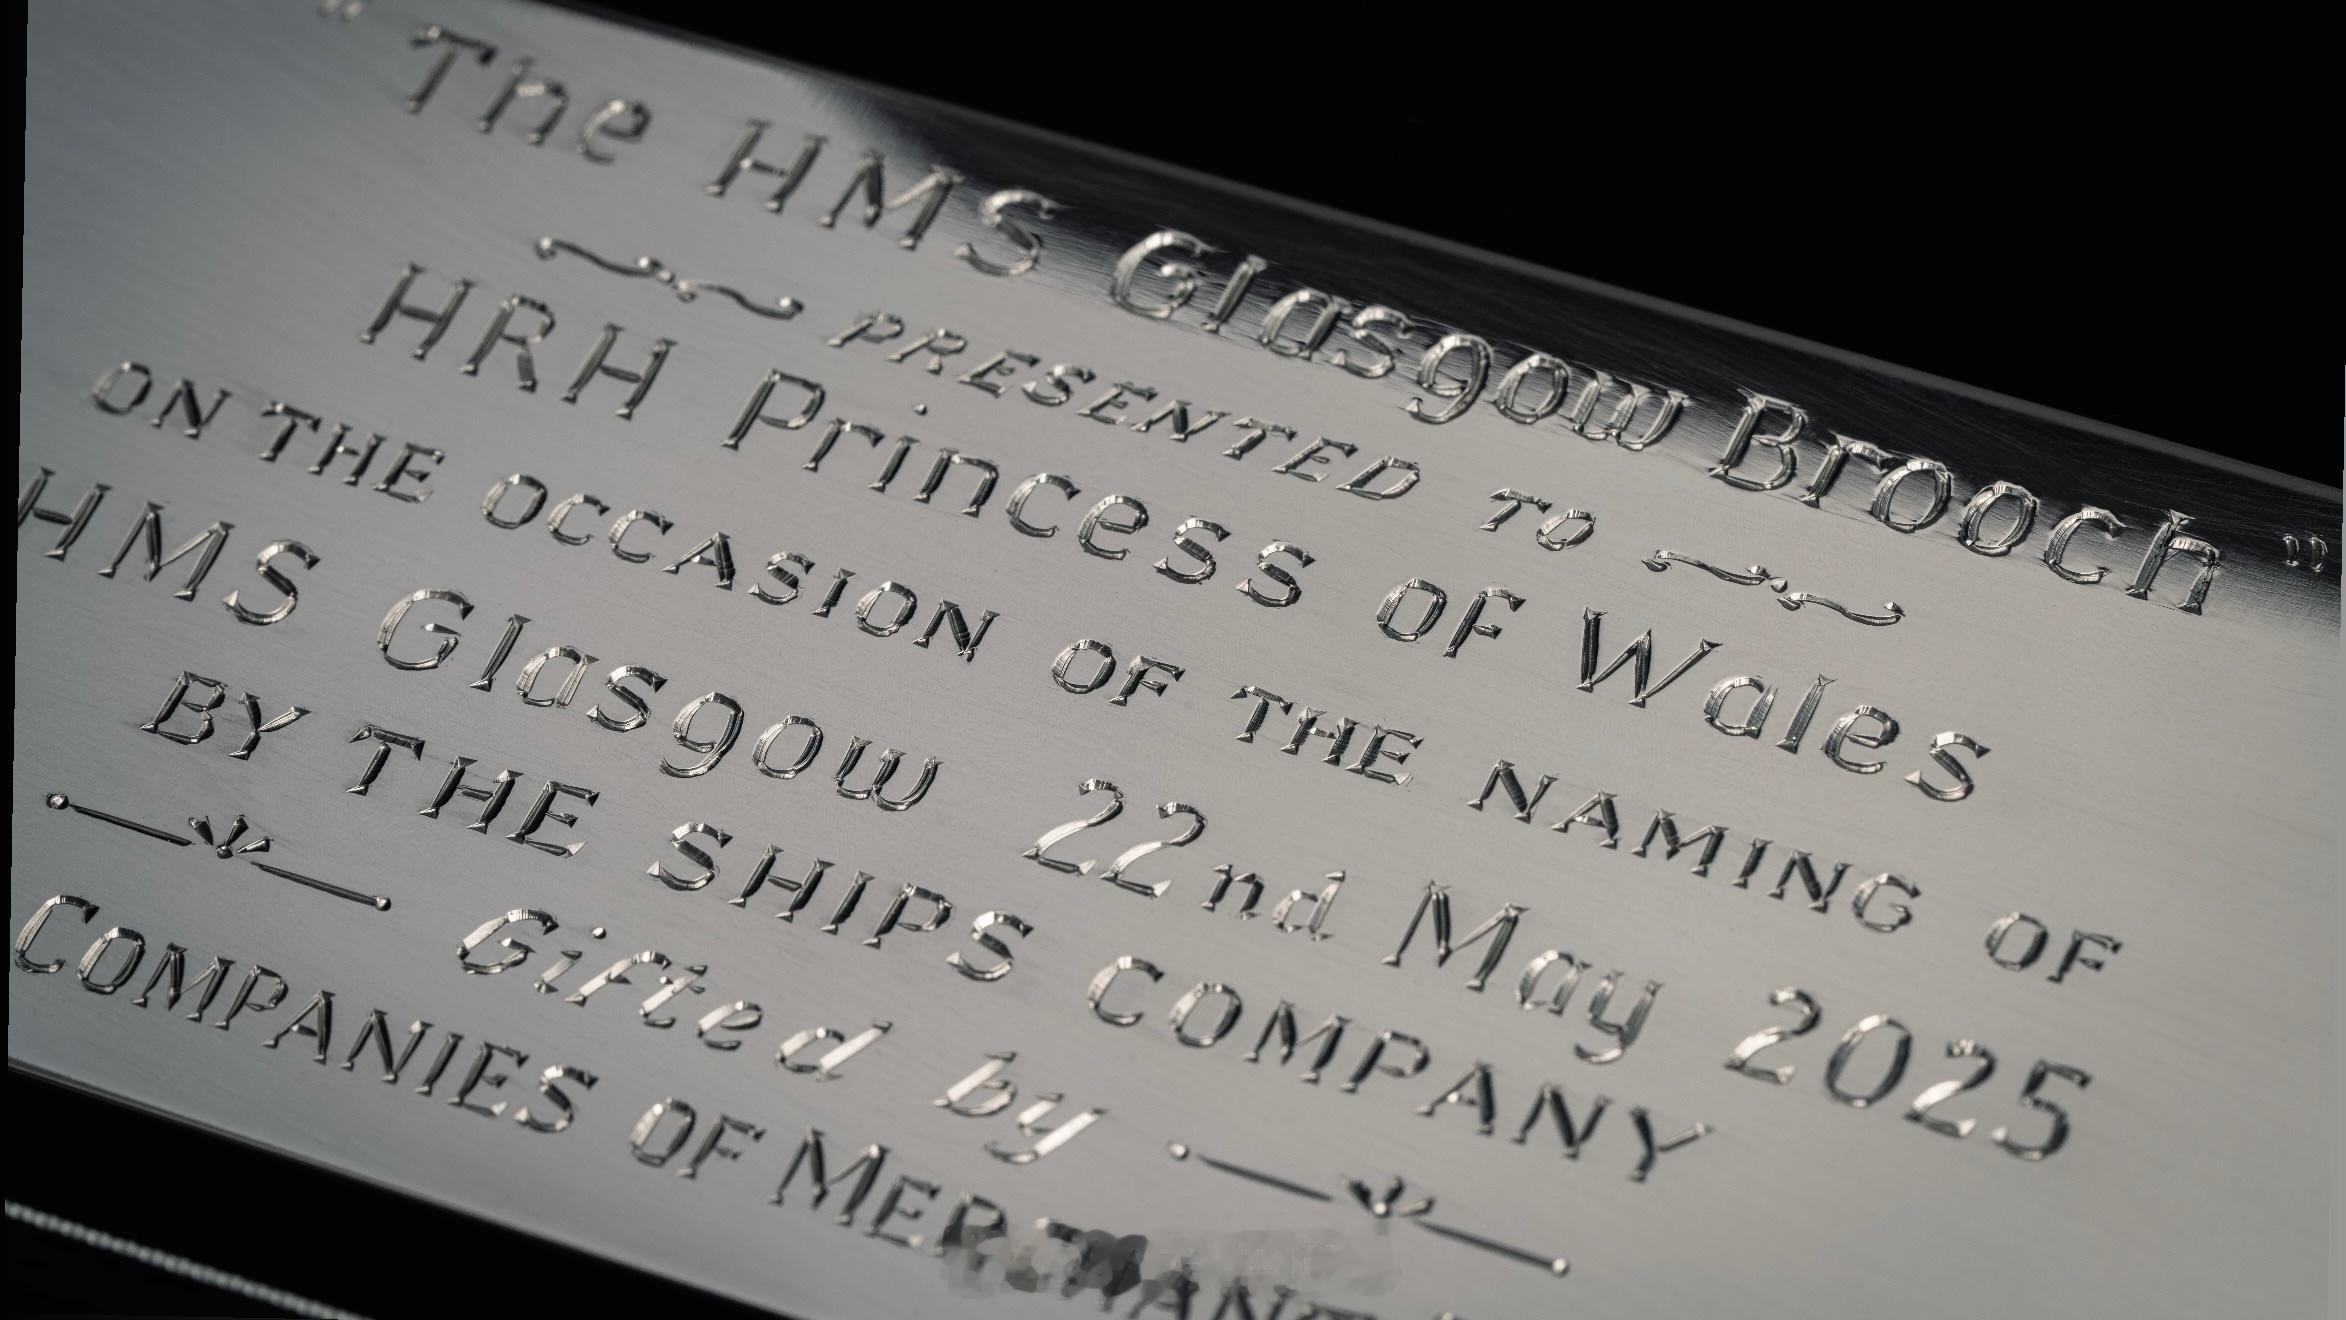 "The HMS Glasgow Brooch"
PRESENTED TO
HRH Princess OF Wales
ON THE OCCASION OF THE NAMING OF
HMS Glasgow 22nd May 2025
BY THE SHIPS COMPANY
Gifted by
COMPANIES OF